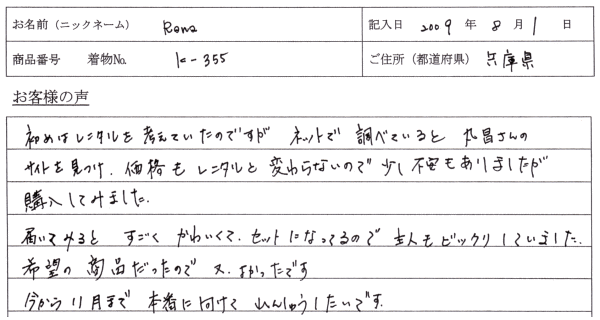 お名前（ニックネーム） Rena 記入日 2009 年 8 月 1 日
商品番号 着物No. K-355 ご住所（都道府県） 兵庫県
お客様の声
初めはレンタルを考えていたのですが ネットで 調べていると 丸昌さんの
サイトを見つけ、価格も レンタルと 変わらないので 少し不安もありましたが
購入してみました。
届いてみると すごく かわいくて、セットになってるので 主人もビックリしていました。
希望の商品だったので 又、よかったです
今から11月まで 本番に向けて れんしゅうしたいです。